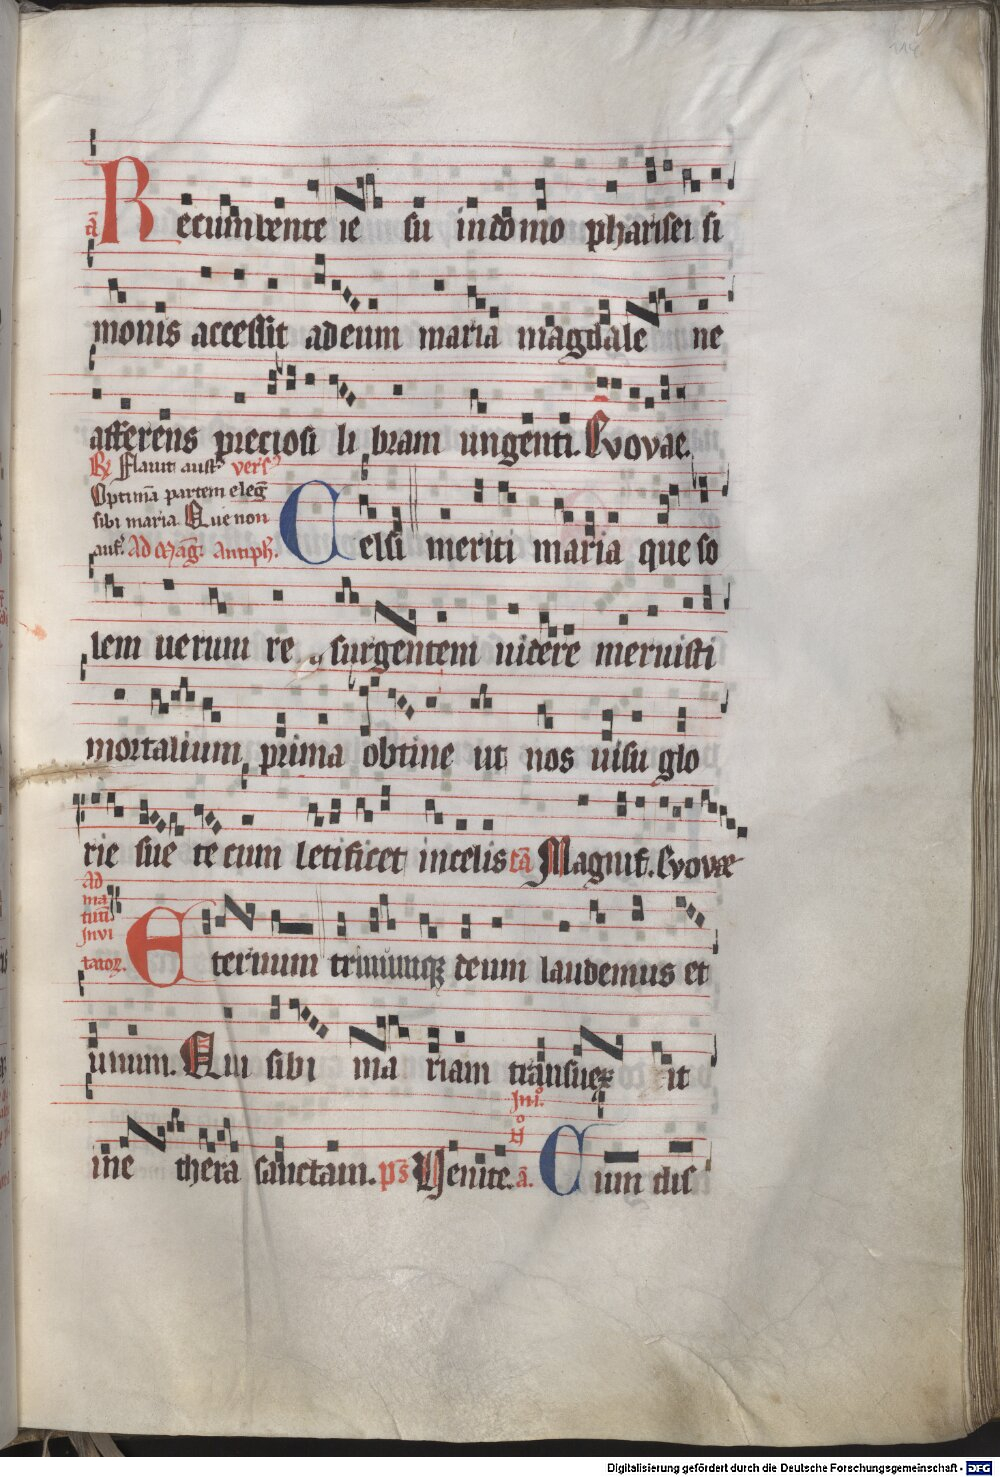 114
a̅ Recumbente ie su in domo pharisei si
monis accessit ad eum maria magdale ne
afferens preciosi li bram ungenti. Evovae.
R̷ Flavit aust᷑ vers᷑
Optima̅ partem eleg̅
sibi maria. Que non
auf᷑. Ad Mag᷑. Antiph̅.
Celsi meriti maria que so
lem uerum re surgentem uidere meruisti
mortalium prima obtine ut nos uisu glo
rie sue te cum letificet in celis ca̅ Magnif̅. Evovae
Ad
ma
tuti̅
Invi
tatoꝝ.
Eternum trinumqꝫ deum laudemus et
unum. Qui sibi ma riam transuex it
in e thera sanctam. ps̅ Venite. a̅. Cum dis
Digitalisierung gefördert durch die Deutsche Forschungsgemeinschaft - DFG